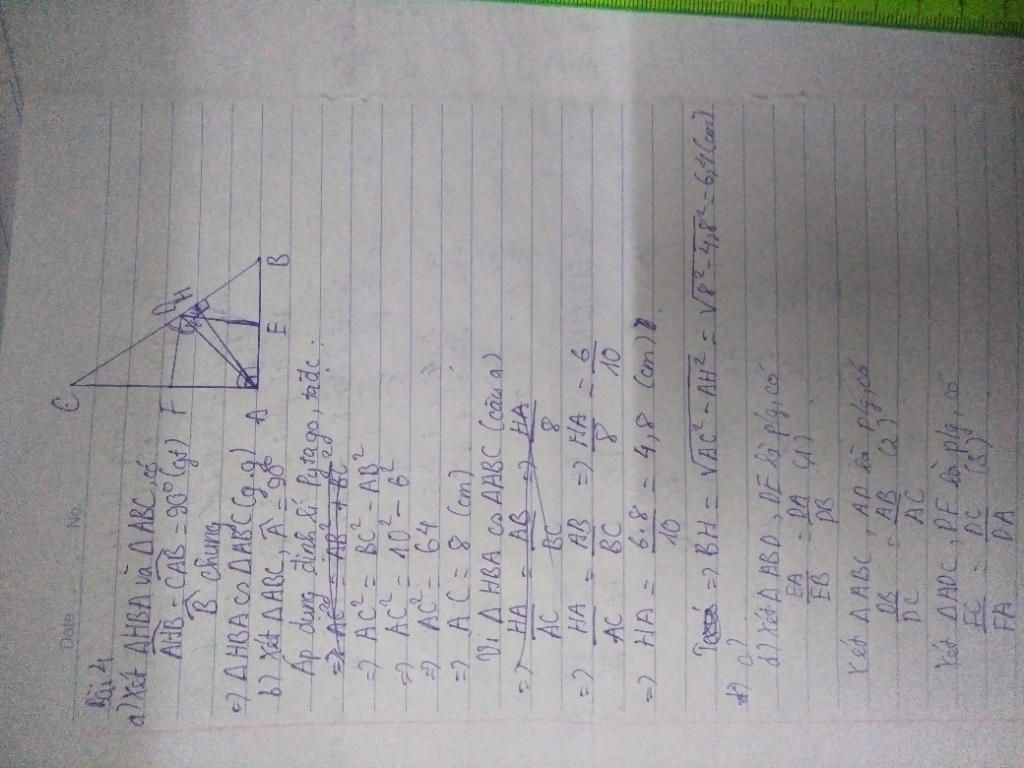 Date No.
Bài 4
a) Xét ΔHBA và ΔABC, có
AHB = CAB = 90° (gt)
B chung
=> ΔHBA ∽ ΔABC (g.g)
b) Xét ΔABC, A = 90°
Áp dụng định lí Pytago, ta đc:
=> AC² = AB² + BC²
=> AC² = BC² - AB²
=> AC² = 10² - 6²
=> AC² = 64
=> AC = 8 (cm)
Vì ΔHBA ∽ ΔABC (câu a)
=> HA/AC = AB/BC => HA/8
=> HA/AC = AB/BC => HA/8 = 6/10
=> HA = 6.8/10 = 4,8 (cm)
=> BH = √AC² - AH² = √8² - 4,8² = 6,4 (cm)
c)
d) Xét ΔABD, DE là p/g, có
EA/EB = DA/DB (1)
Xét ΔABC, AD là p/g, có
DB/DC = AB/AC (2)
Xét ΔADC, DF là p/g, có
FC/FA = DC/DA (3)
C
F
D
H
A
E
B